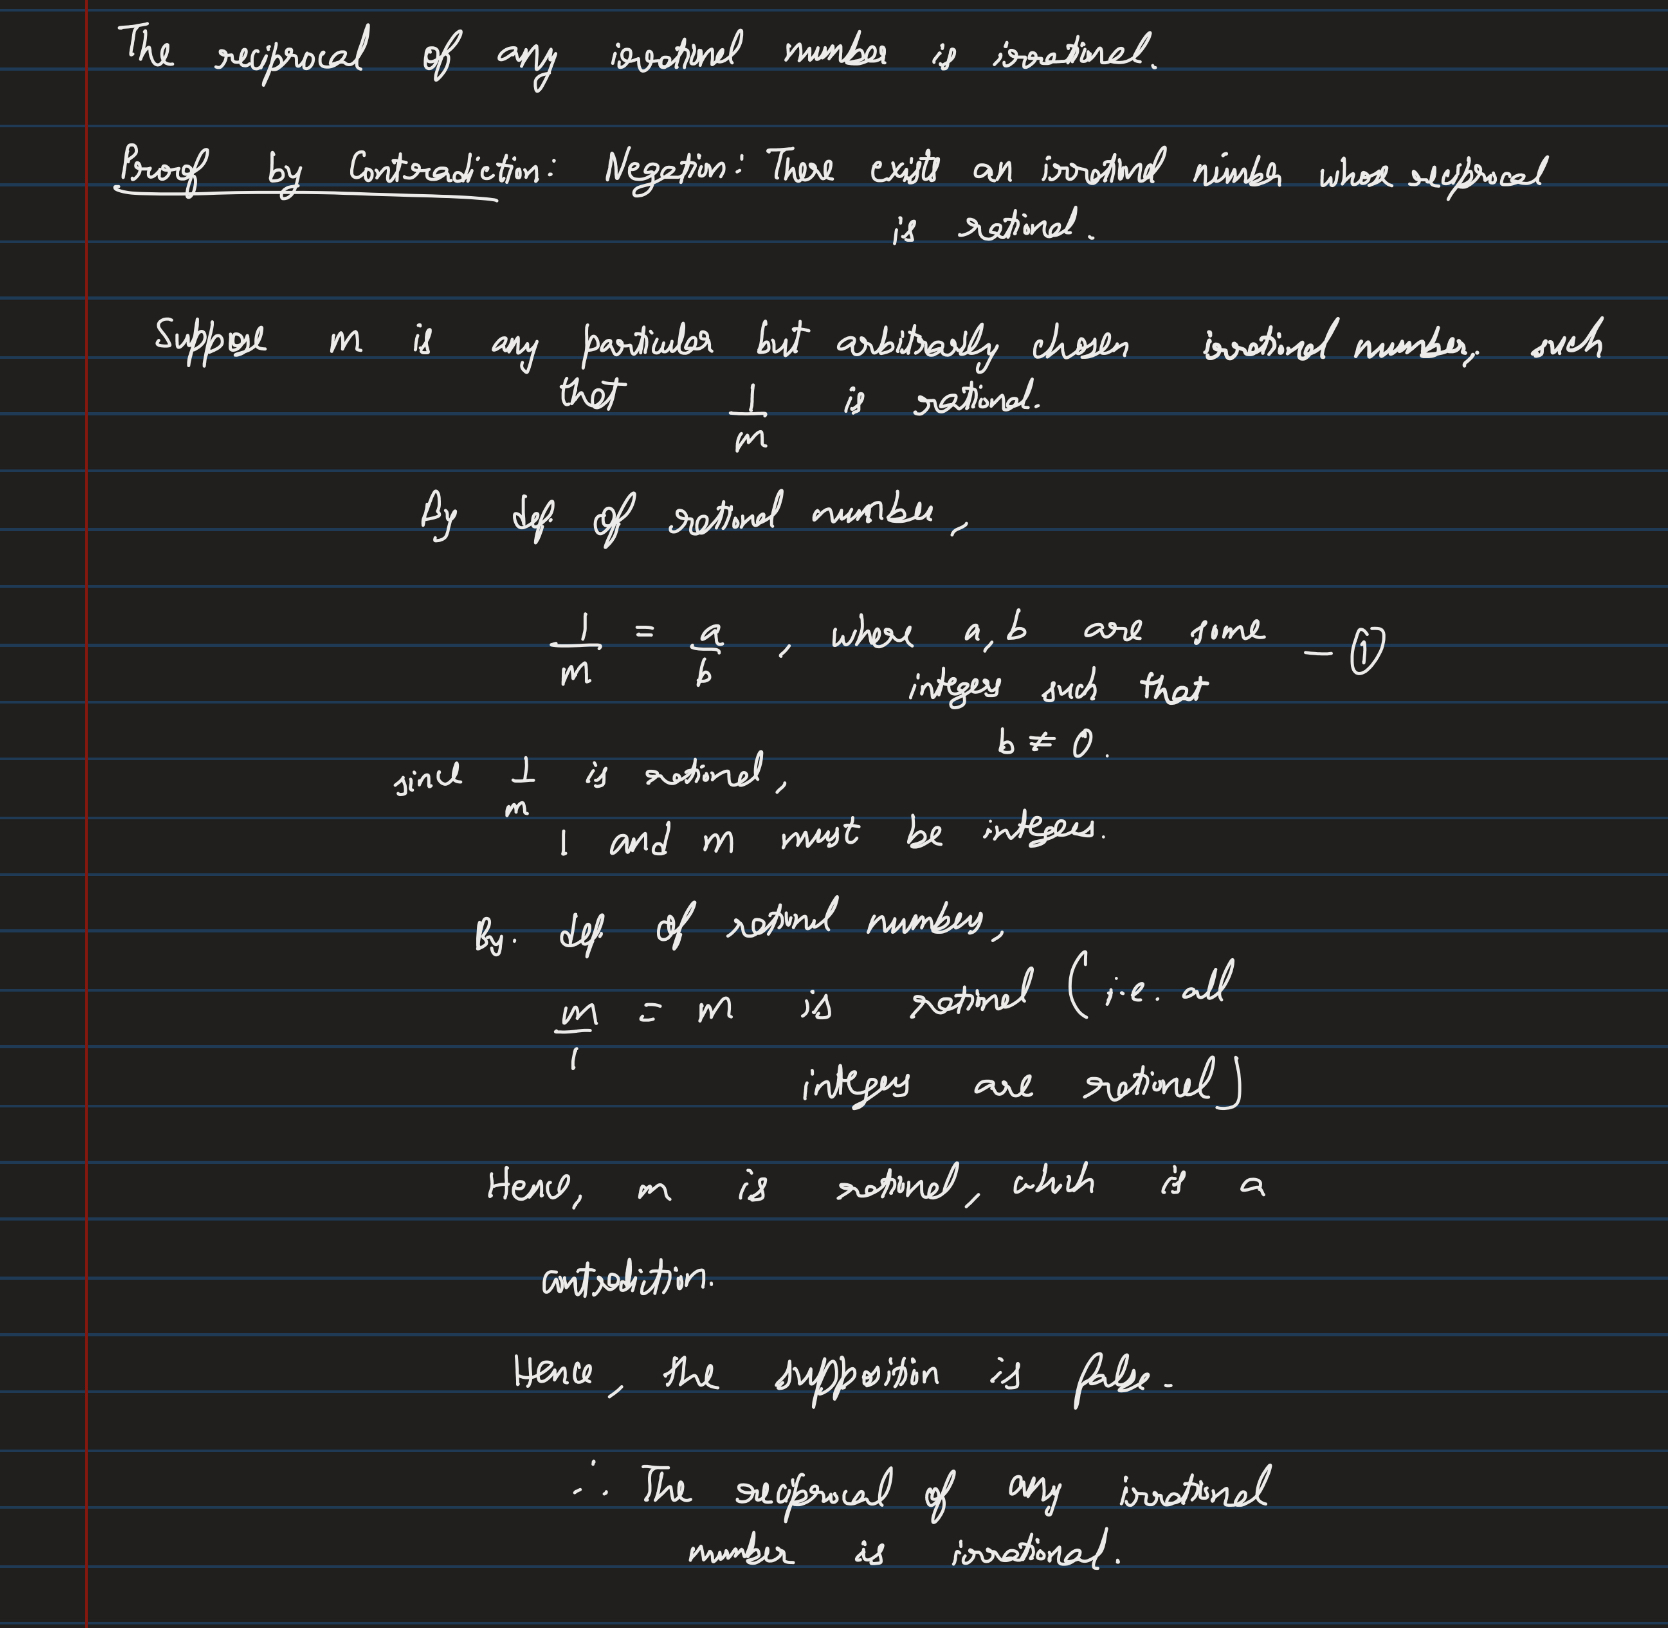 The reciprocal of any irrational number is irrational.
Proof by Contradiction: Negation: There exists an irrational number whose reciprocal
is rational.
Suppose m is any particular but arbitrarily chosen irrational number, such
that 1/m is rational.
By def. of rational number,
1/m = a/b , where a, b are some — ①
integers such that
b ≠ 0.
since 1/m is rational,
1 and m must be integers.
By. def. of rational numbers,
m/1 = m is rational (i.e. all
integers are rational)
Hence, m is rational, which is a
contradiction.
Hence, the supposition is false.
∴ The reciprocal of any irrational
number is irrational.